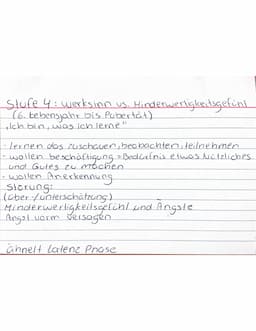 Stufe 4: Werksinn vs. Minderwertigkeitsgefühl
(6. Lebensjahr bis Pubertät)
„Ich bin, was ich lerne"
- lernen das zuschauen, beobachten, teilnehmen
- wollen beschäftigung = Bedürfnis etwas Nützliches
und Gutes zu machen
- wollen Anerkennung
Störung:
(über-/unterschätzung)
Minderwertigkeitsgefühl und Ängste
Angst vorm Versagen
ähnelt Latenz Phase